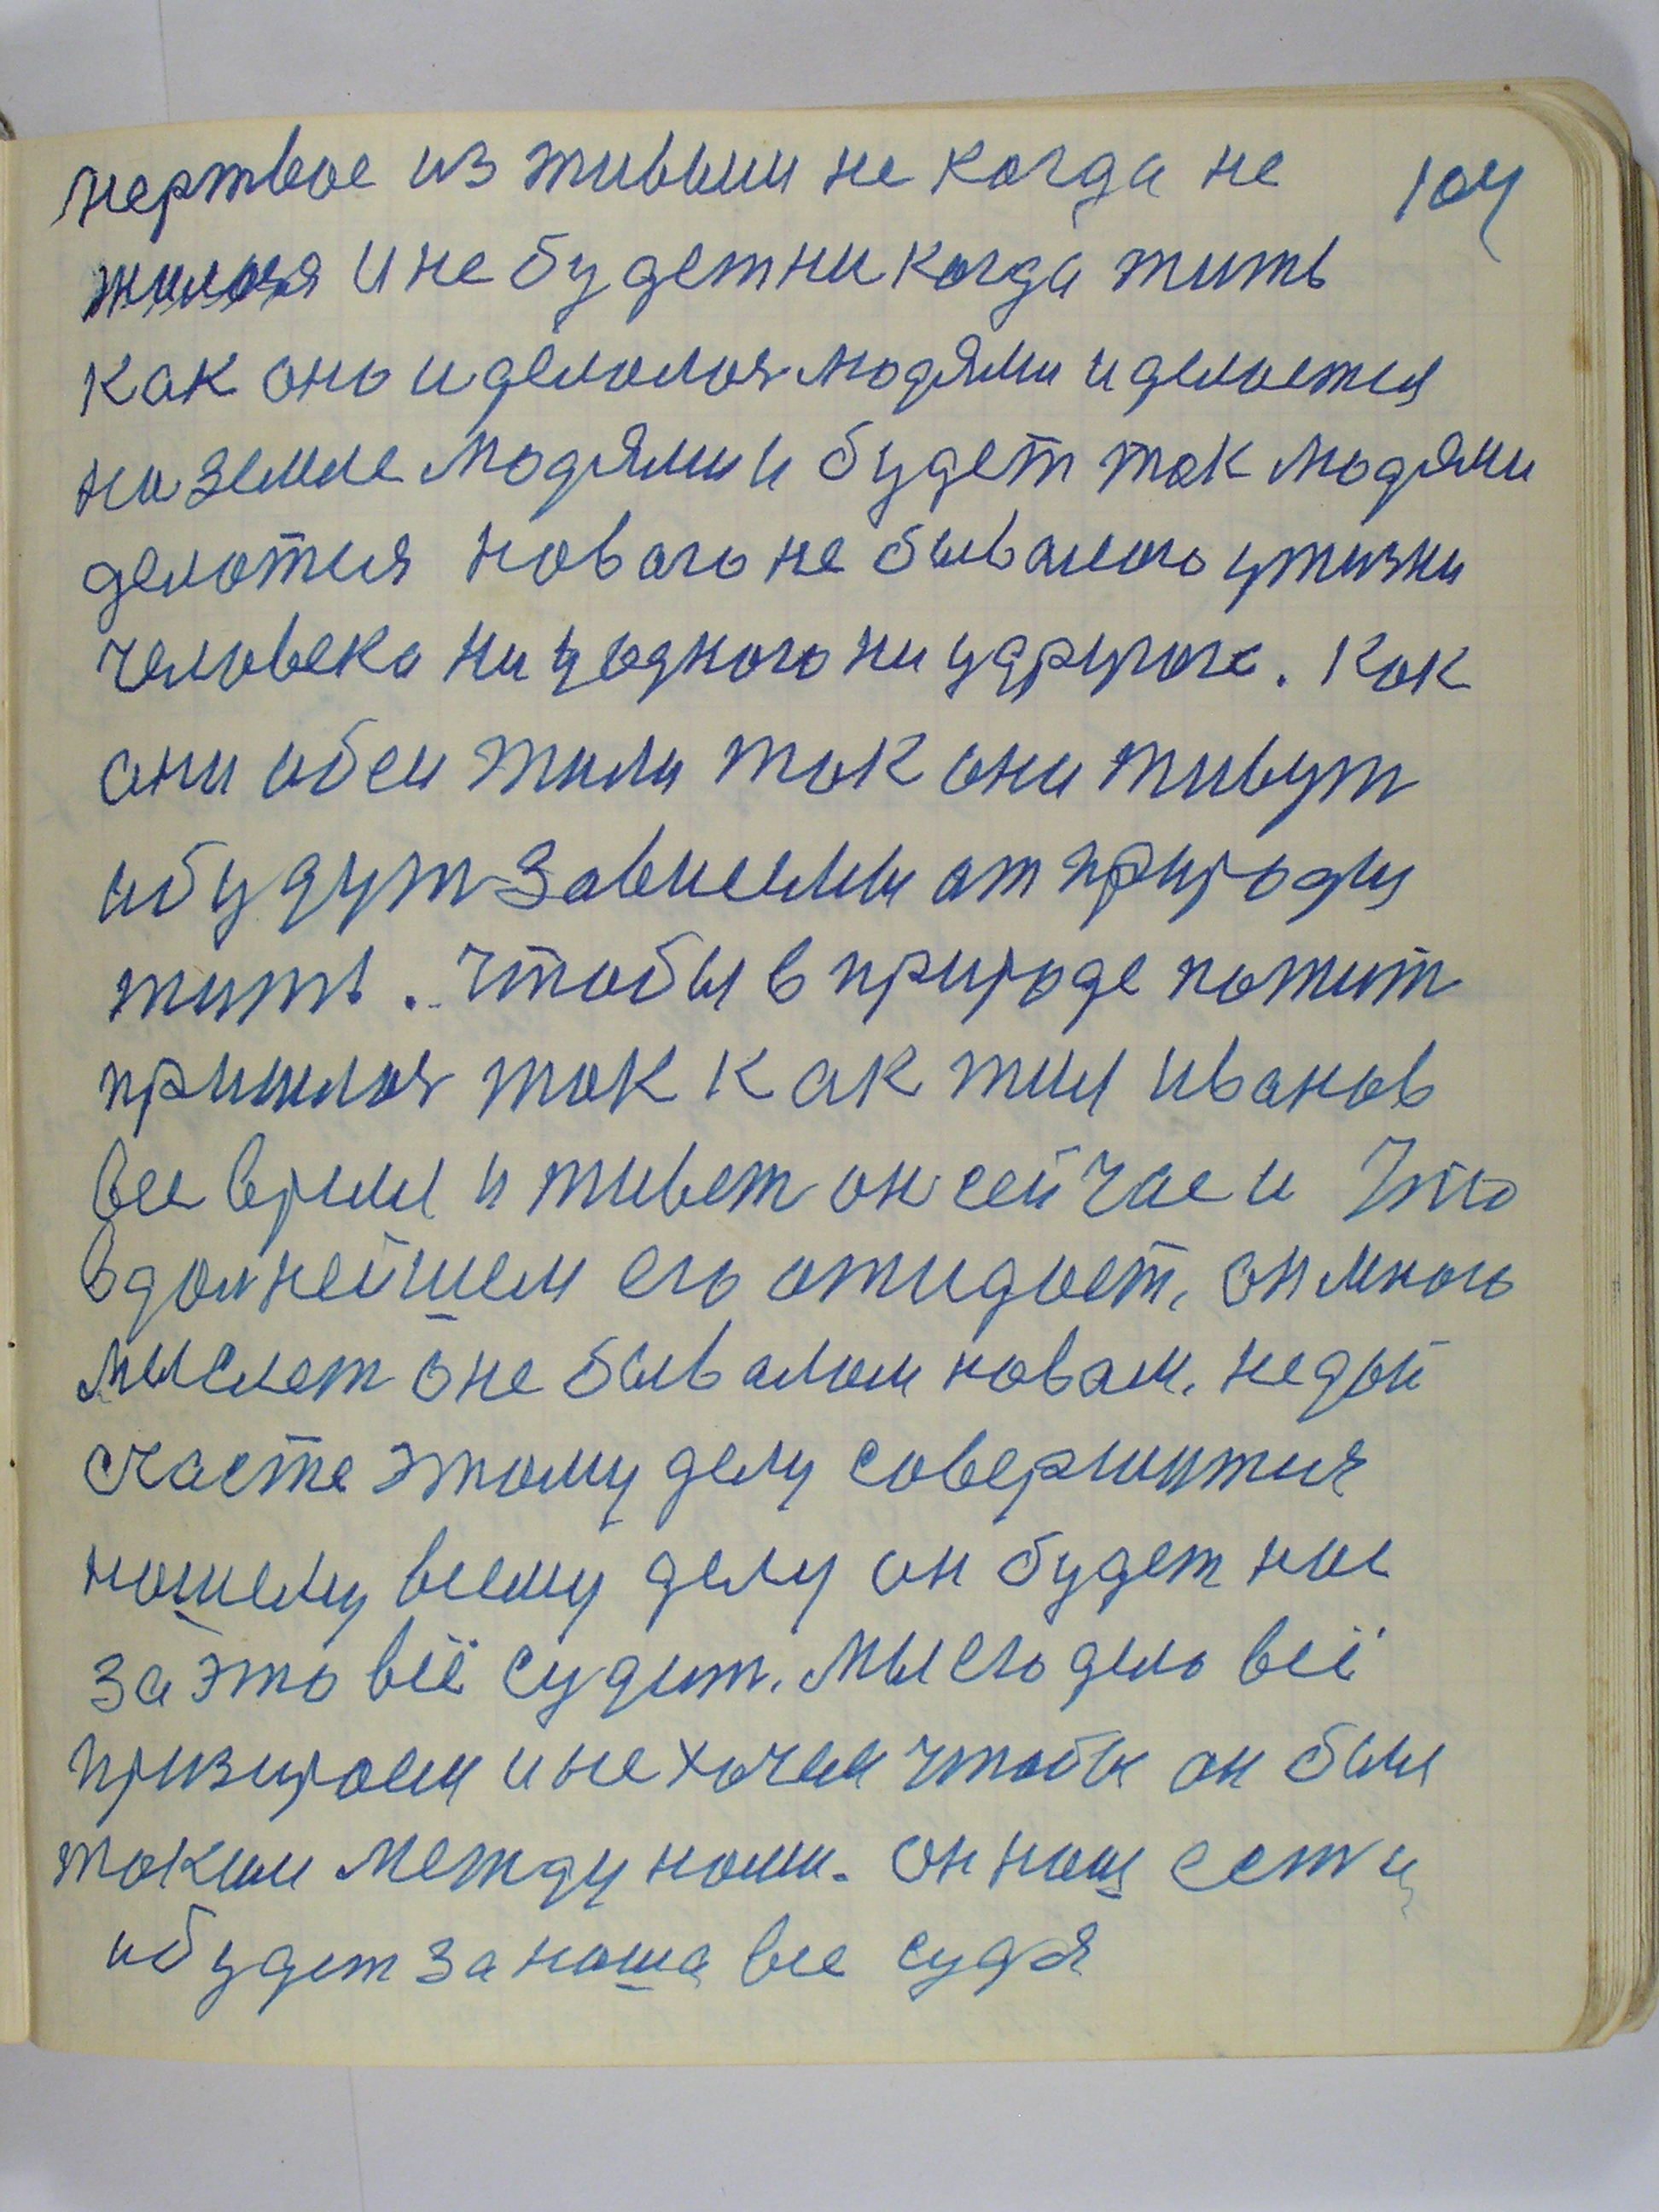 мертвое из живым не когда не 104
жилося и не будет никогда жить
как оно и делалося людями и делается
на земле людями и будет так людями
делатися нового не бывалого у жизни
человека ни у одного ни у другого. Как
они обеи жили так они живут
и будут зависемы от природы
жить. Чтобы в природе пожит
пришлося так как жил иванов
все время и живет он сейчас и что
в далнейшем его ожидает, он много
мыслет о не бывалом новам, недай
счасте этому делу совершится
нашему всему делу он будет нас
за это всё судит. Мы его дело всё
призираем и не хочем чтобы он был
таким между нами. он наш ест и
и будет за наша все судя